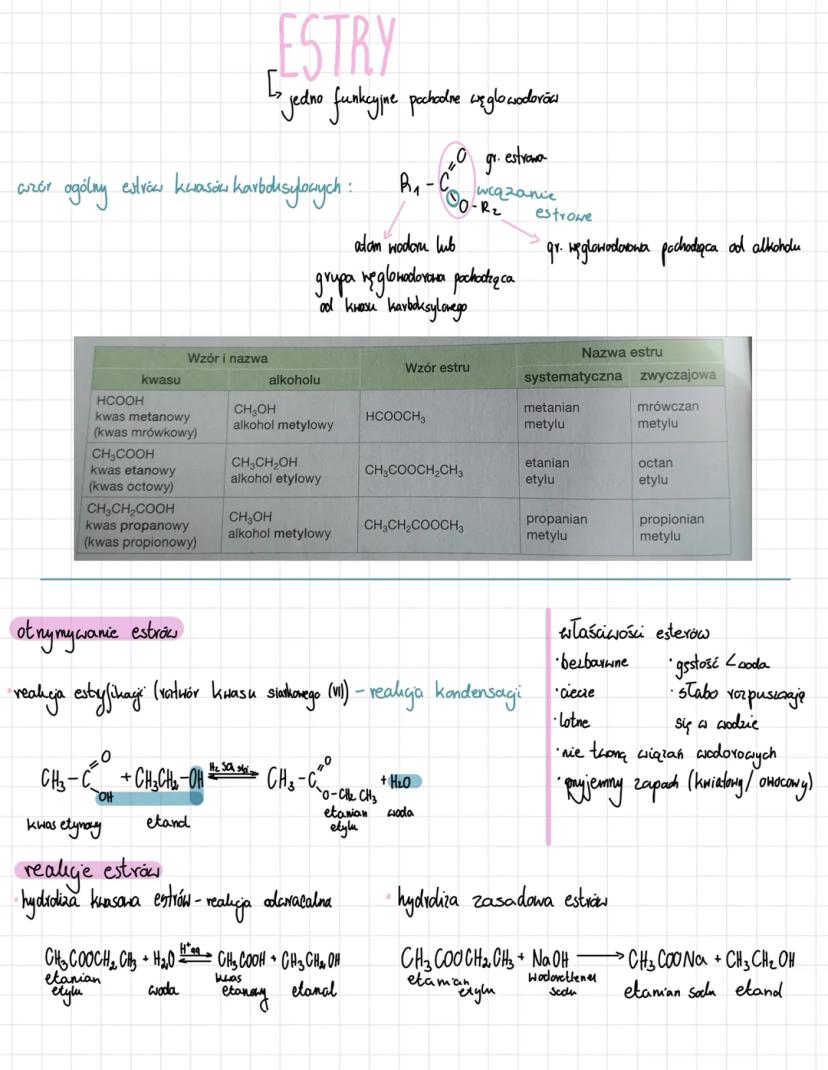 ESTRY
jedno funkcyjne pochodne węglowodorów
wzór ogólny estrów kwasów karboksylowych :
R₁ - C
O
O - R₂
gr. estrowa
wiązanie
estrowe
atom wodoru lub
grupa węglowodorowa pochodząca
od kwasu karboksylowego
gr. węglowodorowa pochodząca od alkoholu
Wzór i nazwa
Wzór estru
Nazwa estru
kwasu
alkoholu
systematyczna
zwyczajowa
HCOOH
kwas metanowy
(kwas mrówkowy)
CH₃OH
alkohol metylowy
HCOOCH₃
metanian
metylu
mrówczan
metylu
CH₃COOH
kwas etanowy
(kwas octowy)
CH₃CH₂OH
alkohol etylowy
CH₃COOCH₂CH₃
etanian
etylu
octan
etylu
CH₃CH₂COOH
kwas propanowy
(kwas propionowy)
CH₃OH
alkohol metylowy
CH₃CH₂COOCH₃
propanian
metylu
propionian
metylu
otrzymywanie estrów
• reakcja estryfikacji (roztwór kwasu siarkowego (VI)) - reakcja kondensacji
CH₃ - C
O
OH
+ CH₃CH₂ - OH
H₂SO₄ stęż.
CH₃ - C
O
O - CH₂ CH₃
+ H₂O
kwas etynowy
etanol
etanian
etylu
woda
właściwości esterów
• bezbarwne
• ciecze
• lotne
• gęstość < woda
• słabo rozpuszczają
się w wodzie
• nie tworzą wiązań wodorowych
• przyjemny zapach (kwiatowy / owocowy)
reakcje estrów
• hydroliza kwasowa estrów - reakcja odwracalna
CH₃COOCH₂CH₃ + H₂O H⁺aq ⇌ CH₃COOH + CH₃CH₂OH
etanian
etylu
woda
kwas
etanowy
etanol
• hydroliza zasadowa estrów
CH₃COOCH₂CH₃ + NaOH ⟶ CH₃COONa + CH₃CH₂OH
etanian
etylu
wodorotlenek
sodu
etanian sodu
etanol